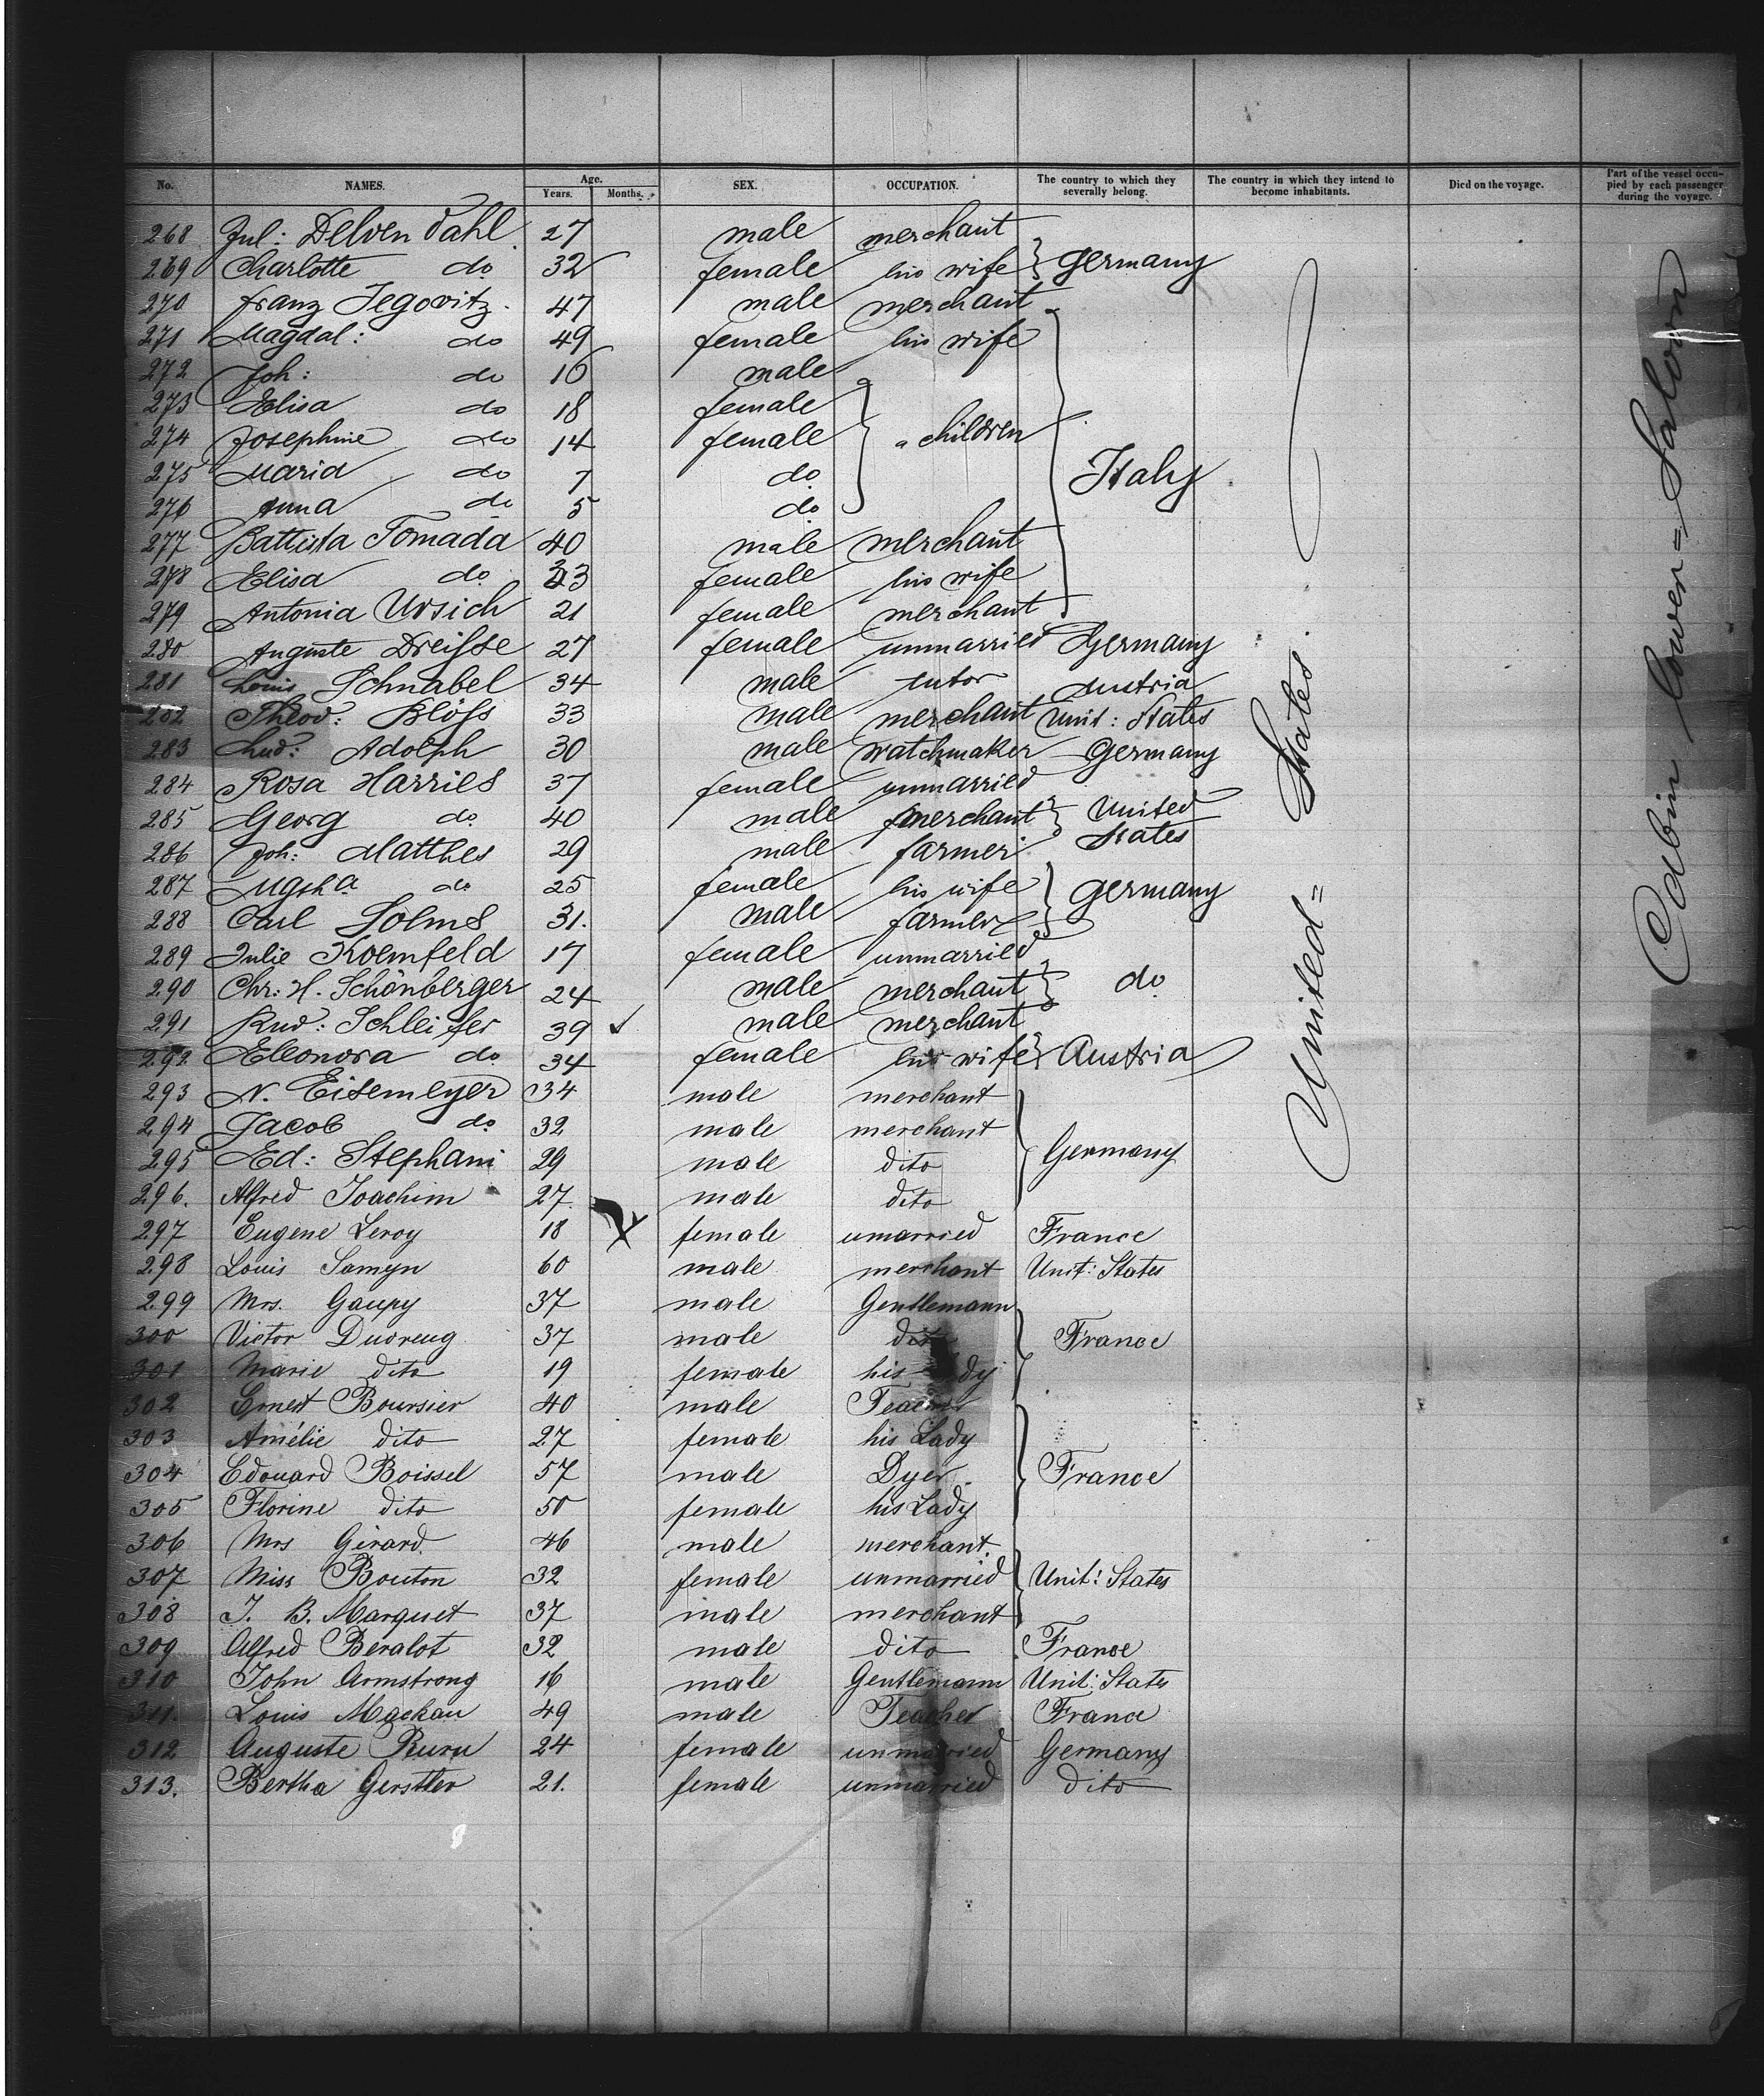 No. NAMES. Age. Years. Months. SEX. OCCUPATION. The country to which they severally belong. The country in which they intend to become inhabitants. Died on the voyage. Part of the vessel occupied by each passenger during the voyage.
268 Jul: Delvendahl 27 male merchant
269 Charlotte do 32 female his wife } Germany
270 Franz Jegovitz 47 male merchant
271 Magdal: do 49 female his wife
272 Joh: do 16 male
273 Elisa do 18 female
274 Josephine do 14 female children
275 Maria do 7 do Italy
276 Anna do 5 do
277 Battista Tomada 40 male merchant
278 Elisa do 33 female his wife
279 Antonia Ursich 21 female merchant
280 Auguste Dreisse 27 female unmarried Germany
281 Louis Schnabel 34 male tutor Austria
282 Theod: Blöss 33 male merchant Unit: States
283 Lud: Adolph 30 male watchmaker Germany
284 Rosa Harries 37 female unmarried
285 Georg do 40 male merchant } United States
286 Joh: Matthes 29 male farmer
287 do 25 female his wife } Germany
288 Carl Solms 31. male farmer
289 Julie 17 female unmarried
290 Chr: H. Schönberger 24 male merchant } do
291 Rud: Schleifer 39 male merchant
292 Eleonora do 34 female his wife } Austria
293 N. Eisemeyer 34 male merchant
294 Jacob do 32 male merchant
295 Ed: Stephani 29 male dito Germany
296. Alfred Joachim 27. male dito
297 Eugene Leroy 18 female umarried France
298 Louis Samyn 60 male merchant Unit: States
299 Mrs. Gaupy 37 male Gentlemann
300 Victor 37 male dito France
301 Marie dito 19 female his Lady
302 Ernest Boursier 40 male Teacher
303 Amélie dito 27 female his Lady
304 Edouard Boissel 57 male Dyer France
305 Florine dito 50 female his Lady
306 Mrs Girard 46 male merchant.
307 Miss Bouton 32 female unmarried Unit: States
308 J. B. Marquet 37 male merchant
309 Alfred Beralot 32 male dito France
310 John Armstrong 16 male Gentlemann Unit: States
311. Louis Mackau 49 male Teacher France
312 Auguste 24 female unmarried Germany
313. Bertha Gerstler 21. female unmarried dito
United= States.
Cabin lower= Saloon